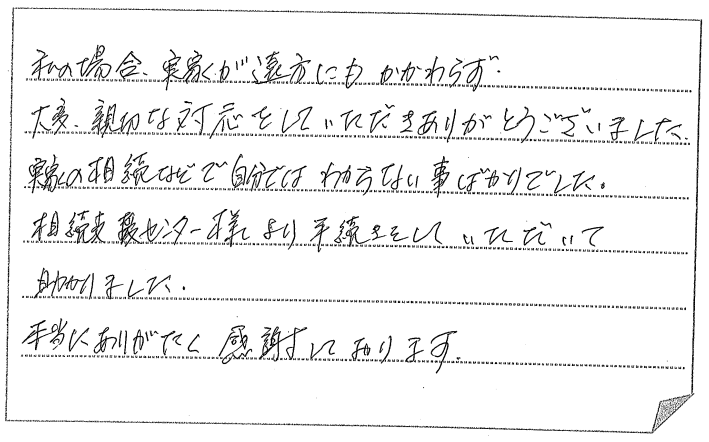 私の場合、実家が遠方にもかかわらず、
大変、親切な対応をしていただきありがとうございました。
実家の相続などで自分ではわからない事ばかりでした。
相続支援センター様より手続きをしていただいて
助かりました。
本当にありがたく感謝しております。